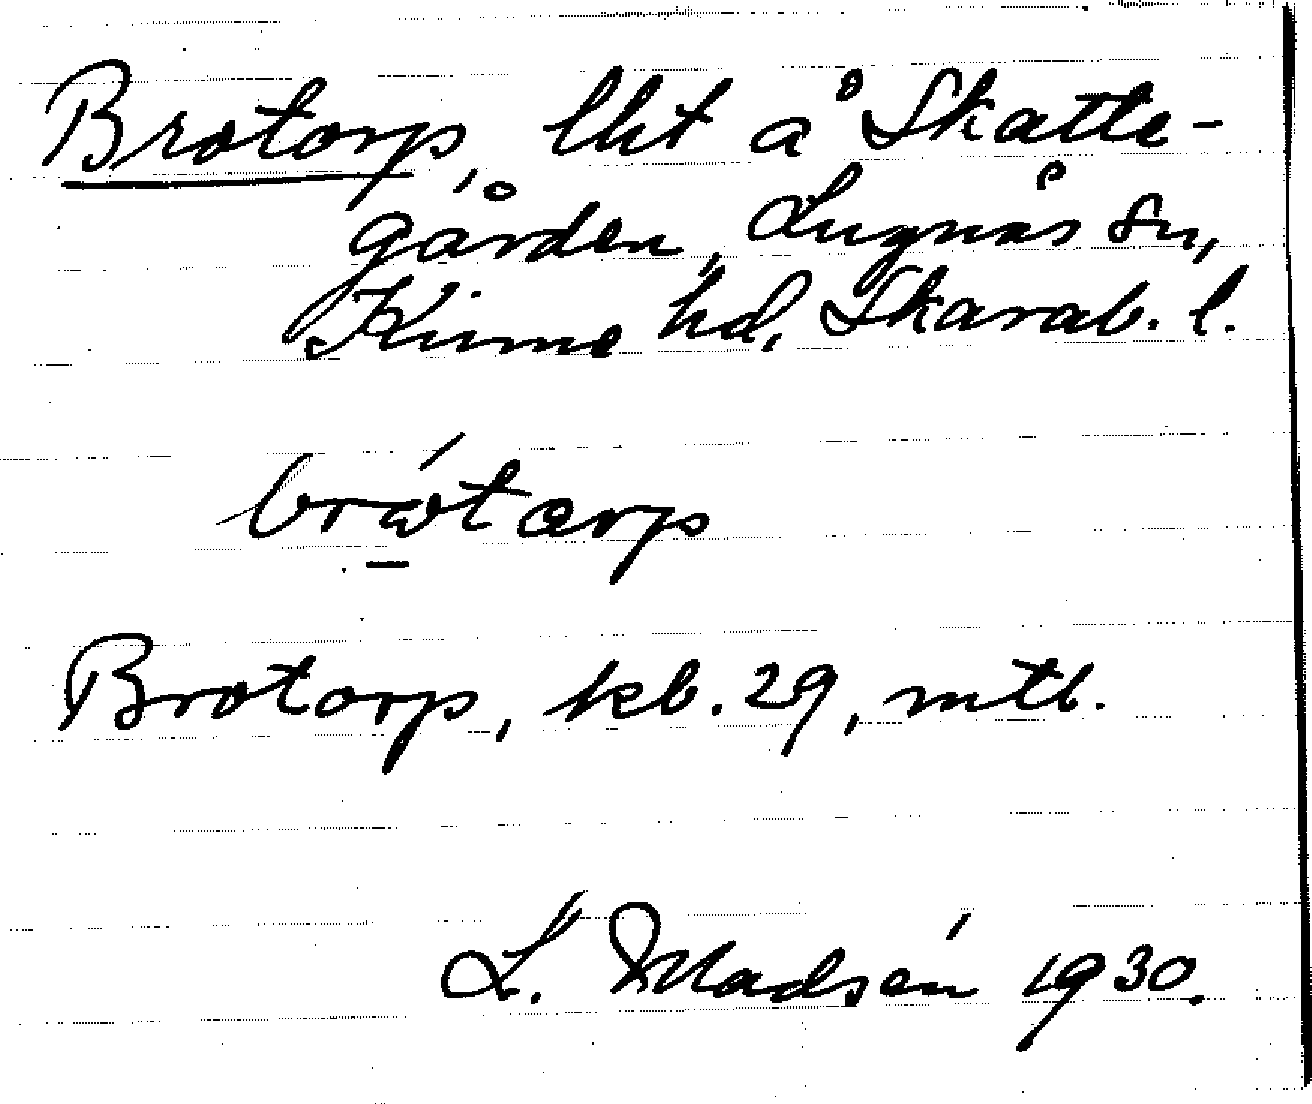 Brotorp, lht å Skatte-
gården, Lugnås sn,
Kinne hd, Skarab. l.
Brotorp, kb. 29, mtb.
L. Madsén 1930.